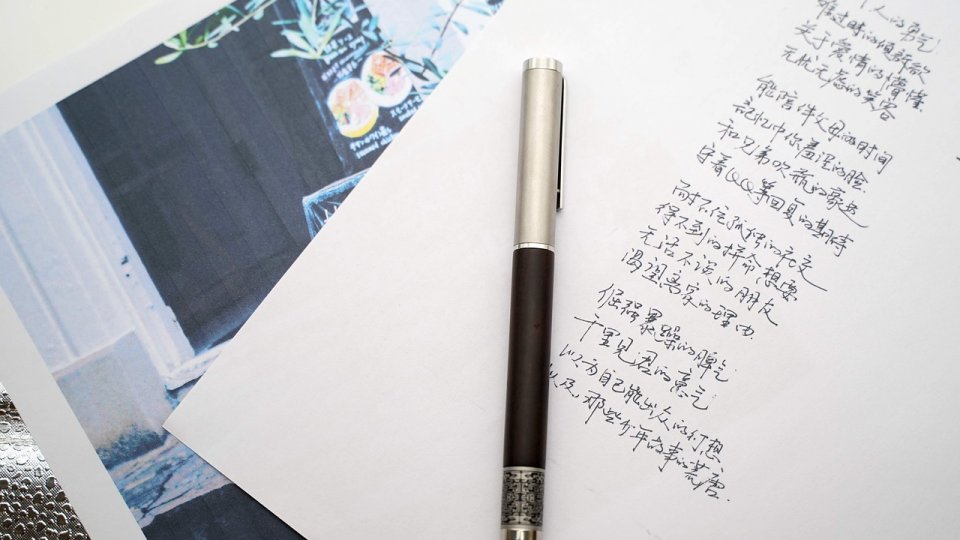 人的勇气
难过时的倾诉欲
关于爱情的懵懂
无忧无虑的笑容
能陪伴父母的时间
记忆中你羞涩的脸
和兄弟吹瓶的豪迈
守着QQ等回复的期待
耐不住孤独的社交
得不到的拼命想要
无话不谈的朋友
渴望离家的理由
倔强暴躁的脾气
千里见君的意气
以为自己能出众的幻想
以及,那些少年 荒唐.